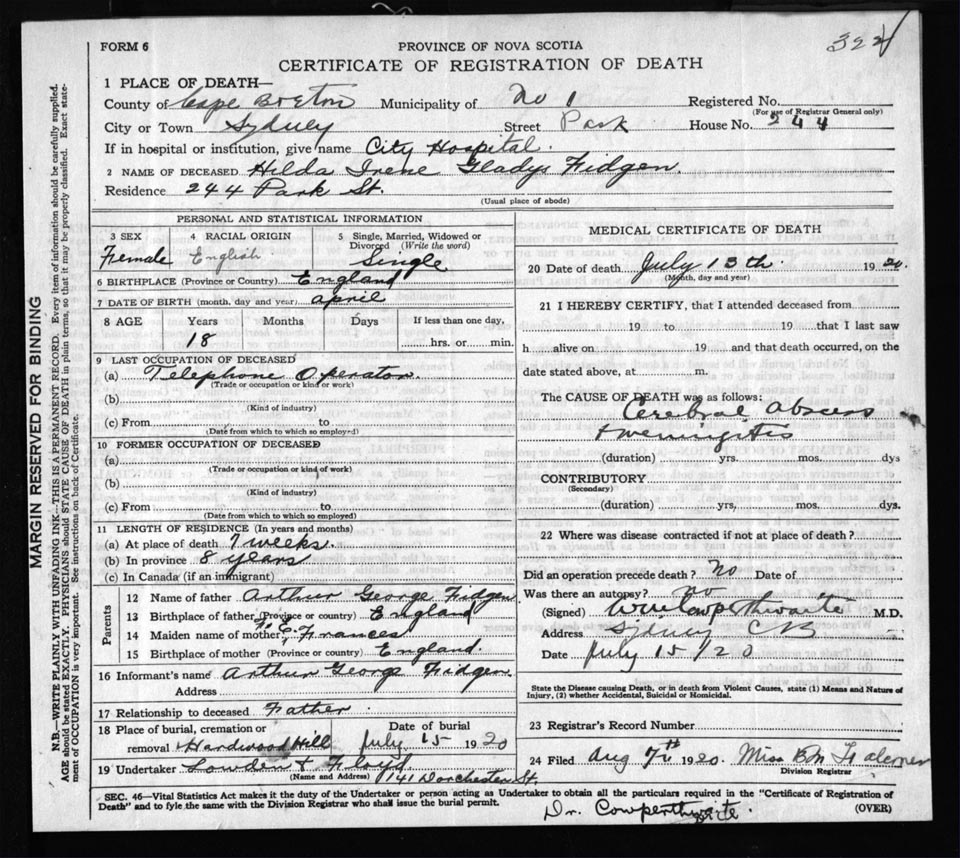 FORM 6
PROVINCE OF NOVA SCOTIA
322
CERTIFICATE OF REGISTRATION OF DEATH
1 PLACE OF DEATH—
County of Cape Breton Municipality of No 1 Registered No.
(For use of Registrar General only)
City or Town Sydney Street Park House No. 244
If in hospital or institution, give name City Hospital.
2 NAME OF DECEASED Hilda Irene Gladys Fidgen.
Residence 244 Park St.
(Usual place of abode)
PERSONAL AND STATISTICAL INFORMATION
3 SEX 4 RACIAL ORIGIN 5 Single, Married, Widowed or
Divorced (Write the word)
Female English Single
6 BIRTHPLACE (Province or Country) England
7 DATE OF BIRTH (month, day and year) april
8 AGE Years Months Days If less than one day,
18 hrs. or min.
9 LAST OCCUPATION OF DECEASED
(a) Telephone Operator.
(Trade or occupation or kind or work)
(b)
(Kind of industry)
(c) From to
(Date from which to which so employed)
10 FORMER OCCUPATION OF DECEASED
(a)
(Trade or occupation or kind of work)
(b)
(Kind of industry)
(c) From to
(Date from which to which so employed)
11 LENGTH OF RESIDENCE (In years and months)
(a) At place of death 7 weeks.
(b) In province 8 years
(c) In Canada (if an immigrant)
Parents
12 Name of father Arthur George Fidgen
13 Birthplace of father (Province or country) England
14 Maiden name of mother E. Frances
15 Birthplace of mother (Province or country) England.
16 Informant's name Arthur George Fidgen.
Address
17 Relationship to deceased Father
18 Place of burial, cremation or Date of burial
removal Hardwood Hill July 15 1920
19 Undertaker Lowden & Floyd
(Name and Address) 141 Dorchester St.
MEDICAL CERTIFICATE OF DEATH
20 Date of death July 13th 1920.
(Month, day and year)
21 I HEREBY CERTIFY, that I attended deceased from
19 to 19 that I last saw
h alive on 19 and that death occurred, on the
date stated above, at m.
The CAUSE OF DEATH was as follows:
Cerebral abscess
+ meningitis
(duration) yrs. mos. dys
CONTRIBUTORY
(Secondary)
(duration) yrs, mos. dys.
22 Where was disease contracted if not at place of death ?
Did an operation precede death ? No Date of
Was there an autopsy? No
(Signed) Cowperthwaite M.D.
Address Sydney CB
Date July 15/20
State the Disease causing Death, or in death from Violent Causes, state (1) Means and Nature of
Injury, (2) whether Accidental, Suicidal or Homicidal.
23 Registrar's Record Number
24 Filed Aug 7th 1920. Miss
Division Registrar
SEC. 46—Vital Statistics Act makes it the duty of the Undertaker or person acting as Undertaker to obtain all the particulars required in the "Certificate of Registration of
Death" and to fyle the same with the Division Registrar who shall issue the burial permit.
(OVER)
Dr. Cowperthwaite.
MARGIN RESERVED FOR BINDING
N.B.—WRITE PLAINLY WITH UNFADING INK—THIS IS A PERMANENT RECORD. Every item of information should be carefully supplied.
AGE should be stated EXACTLY. PHYSICIANS should STATE CAUSE OF DEATH in plain terms, so that it may be properly classified. Exact state-
ment of OCCUPATION is very important. See instructions on back of Certificate.